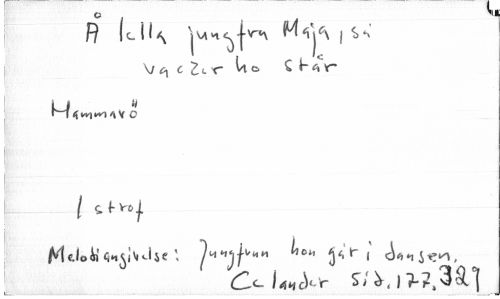 Å lella jungfra Maja, så
vacker ho står
Hammarö
1 strof
Melodiangivelse: Jungfrun hon går i dansen.
Celander sid. 177, 329